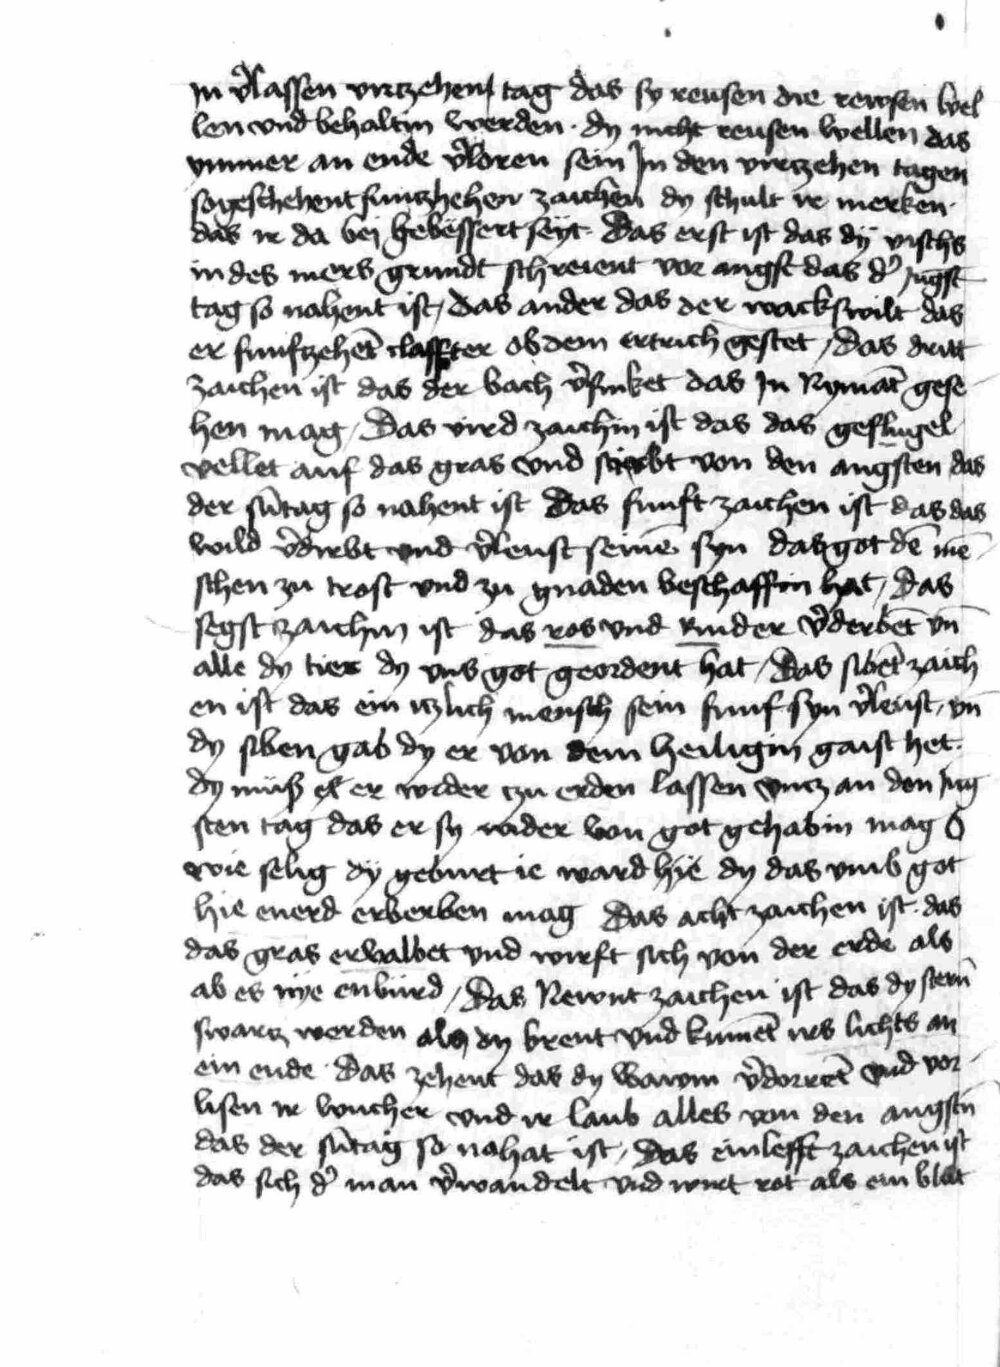 In v̓lassen virtzehen tag das sy reusen die rewsen wel
len vnd behaltin werden · dy nicht reusen wellen das
ymmer an ende v̓loren sein In den virtzehen tagen
so geschehent funtzhehen zaichen dy schult ir merken ·
das ir da bej gebëssert seyt · Das erst ist das dÿ vischs
in des mers grundt schreient vor angst das d̓ Jugst
tag so nahent ist / das ander das der wack swilt das
er funfzehet̄ claffter ob dem ertrich gestet / das dritt
zaichen ist das der bach v̓sinket das In Nymāt gese
hen mag / Das vird zaichin ist das das geflugel
vellet auf das gras vnd stirbt von den angsten das
der sūtag so nahent ist Das funft zaichen ist das das
wild v̓dirbt vnd v̓leust seinē syn das got dē mē
schen zu trost vnd zu gnaden beschaffin hat / das
segst zaichin ist das ros vnd Rinder v̓derbēt vn̄
alle dy tier dy vns got geordent hat / Das sibēt zaich
en ist das ein itzlich mensch sein funf syn v̓leust / vn̄
dy siben gab dy er von dem heiligin gaist het ·
dy müss er wider tzu erden lassen vntz an den Jug
sten tag das er sy wider von got gehabin mag O
wie selig dÿ geburt ie ward hie dy das vmb got
hie enerd erberben mag Das acht zaichen ist · das
das gras erwalbet vnd wirft sich von der erde als
ab es nye enbürd / Das Newnt zaichen ist das dy stern̄
swartz werden als dy brent vnd kumēt irs lichts an
ein ende · Das zehent das dy Bawm v̓dorrēt vnd vor
lisen ir wucher vnd ir laub alles von den angstn̄
das der sūtag so nahat ist / Das einlefft zaichen ist
das sich d̓ man v̓wandelt vnd wirt rot als ein blut